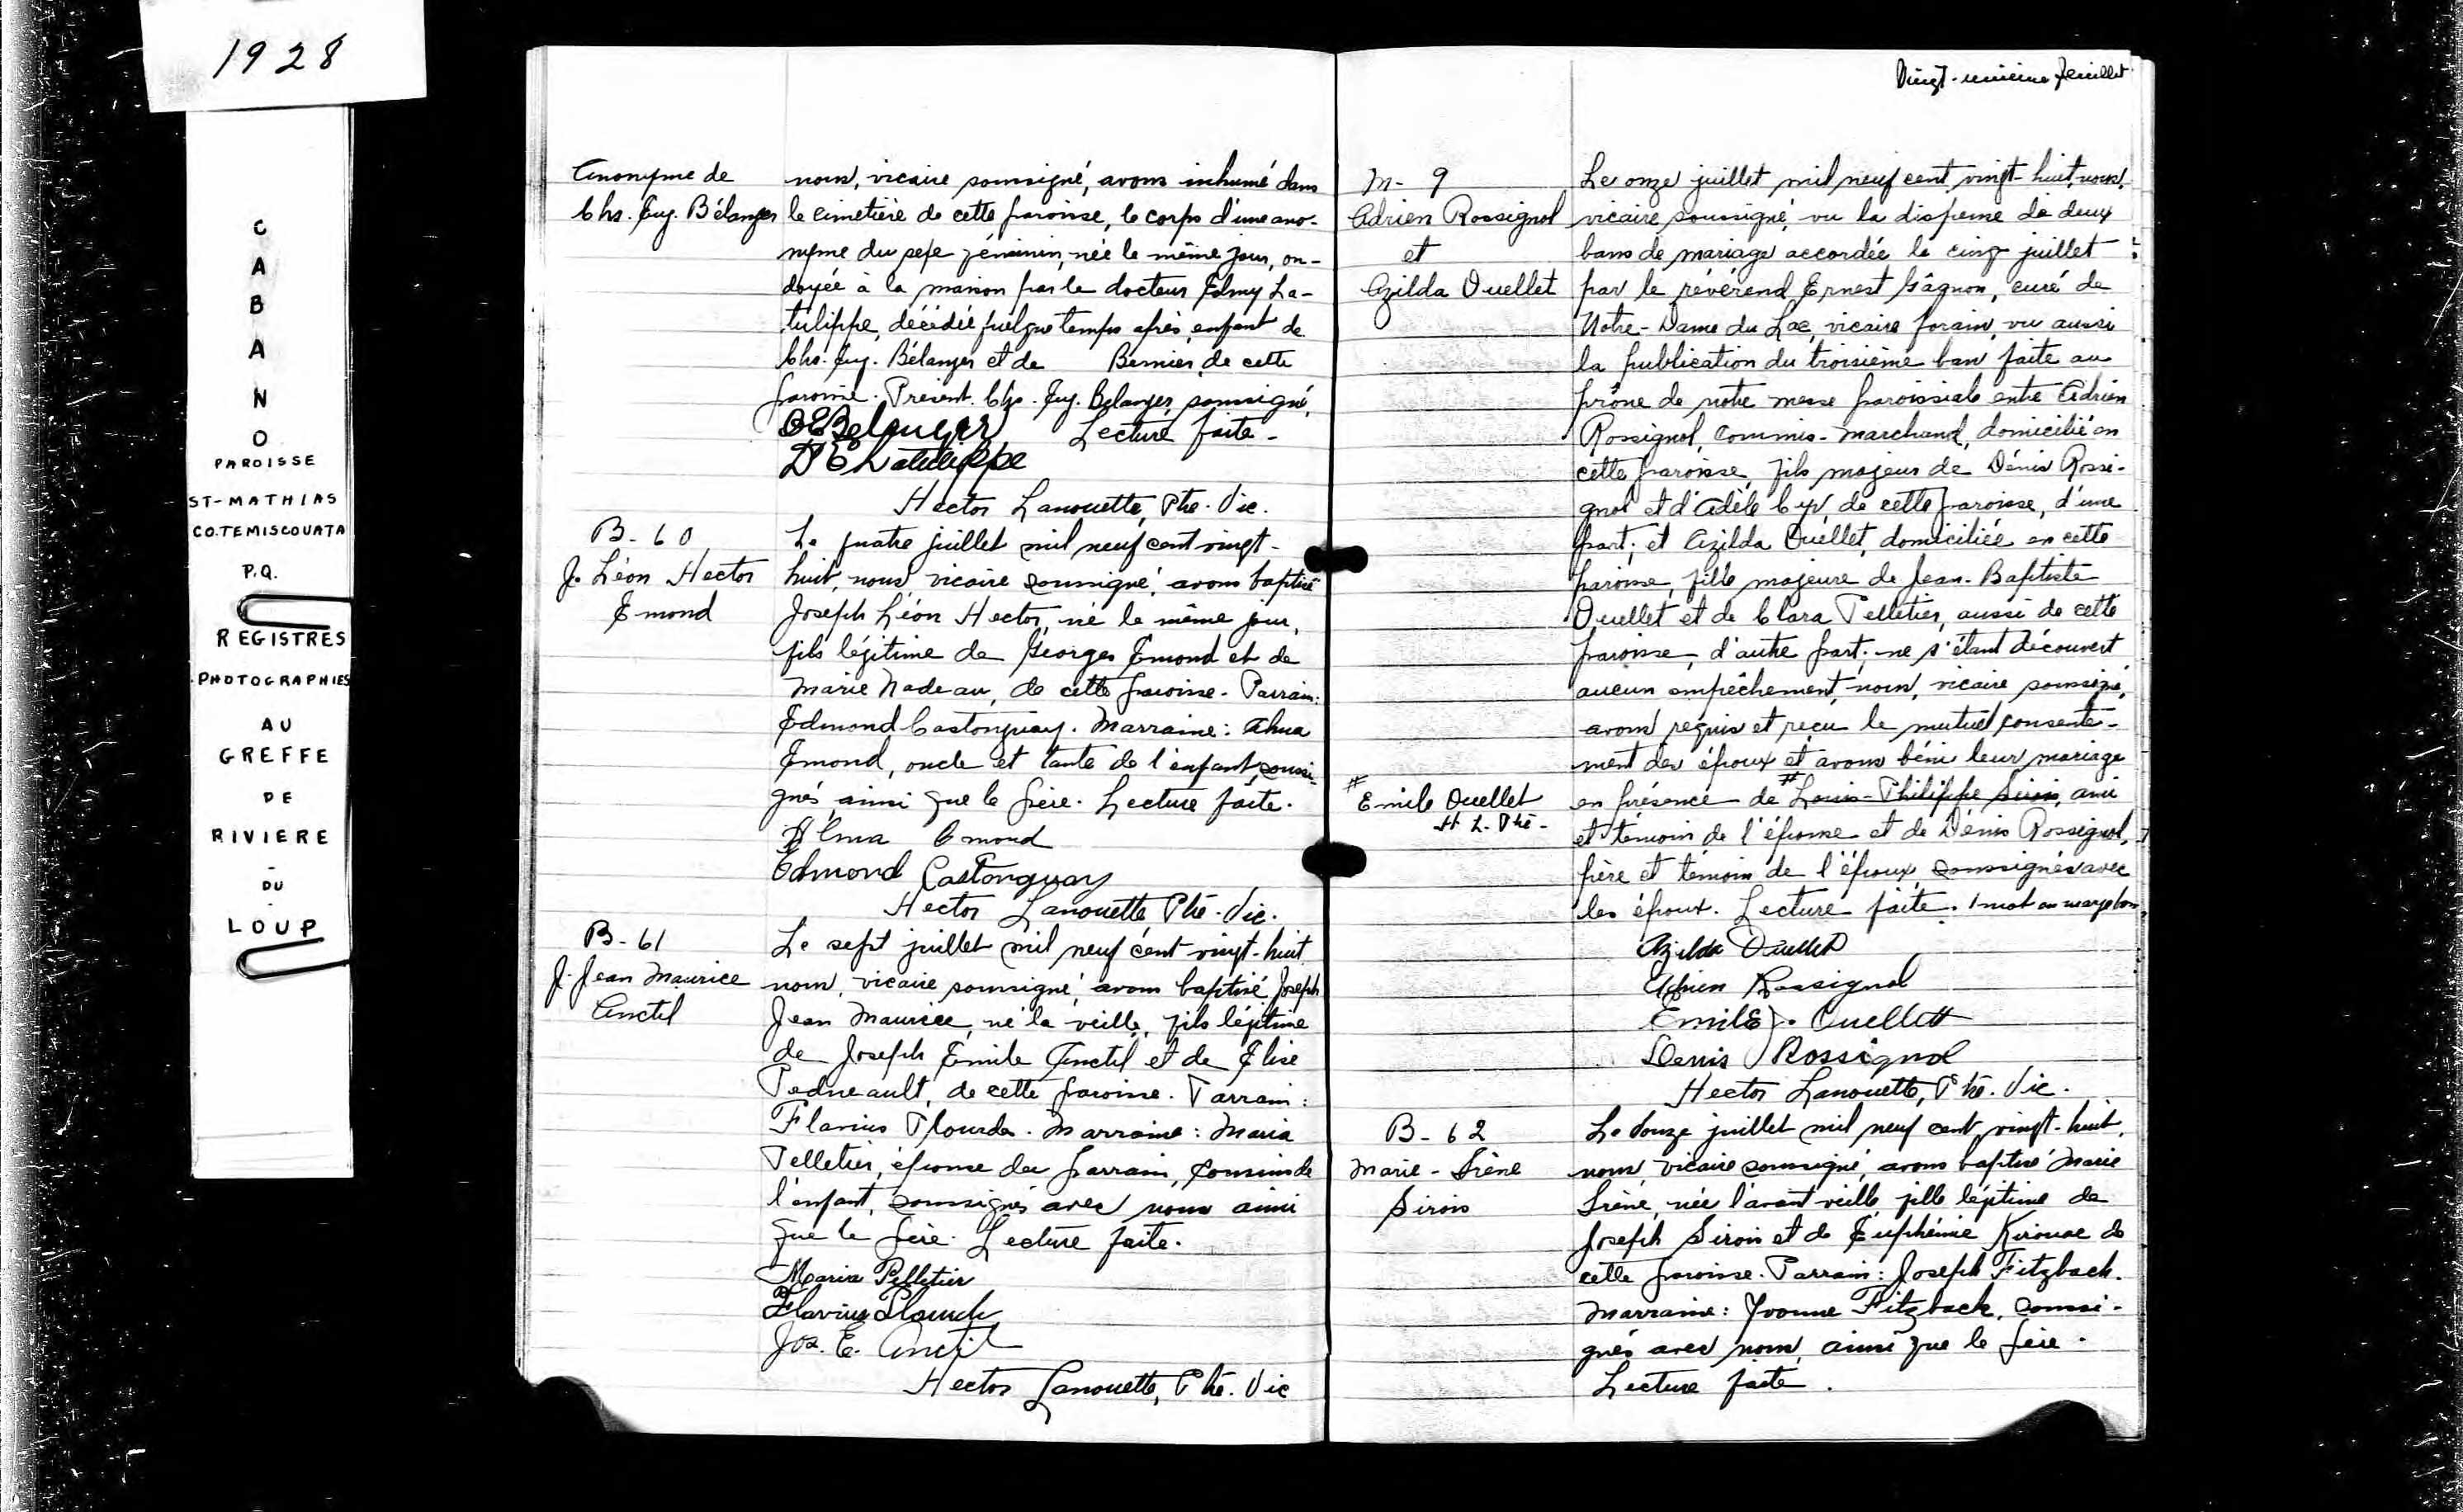 1928
C
A
B
A
N
O
PAROISSE
ST-MATHIAS
CO.TEMISCOUATA
P.Q.
REGISTRES
PHOTOGRAPHIES
AU
GREFFE
DE
RIVIERE
-
DU
-
LOUP
Anonyme de
Chs. Eug. Bélanger
nous, vicaire soussigné, avons inhumé dans
le cimetière de cette paroisse, le corps d'une ano-
nyme du sexe féminin, née le même jour, on-
doyée à la maison par le docteur La-
tulippe, décédée quelque temps après, enfant de
Chs. Eug. Bélanger et de Bernier, de cette
paroisse. Présent. Chs. Eug. Bélanger, soussigné,
Belanger Lecture faite-
D E Latulippe
Hector Lanouette, Ptre. Vic.
B-60
J. Léon Hector
Emond
Le quatre juillet mil neuf cent vingt-
huit, nous vicaire soussigné, avons baptisé
Joseph Léon Hector, né le même jour,
fils légitime de Georges Emond et de
Marie Nadeau, de cette paroisse- Parrain:
Edmond Castonguay. Marraine: Alma
Emond, oncle et tante de l'enfant, soussi-
gnés ainsi que le père. Lecture faite.
Alma Emond
Edmond Castonguay
Hector Lanouette Ptre. Vic.
B-61
J. Jean Maurice
Anctil
Le sept juillet mil neuf cent vingt-huit
nous, vicaire soussigné, avons baptisé Joseph
Jean Maurice, né la veille, fils légitime
de Joseph Emile Anctil et de Elise
Pedneault, de cette paroisse. Parrain:
Flavius Plourde. Marraine: Maria
Pelletier, épouse du parrain, cousins de
l'enfant, soussignés avec nous ainsi
que le père. Lecture faite.
Maria Pelletier
Flavius Plourde
Jos. E. Anctil
Hector Lanouette, Ptre. Vic
Vingt-unième feuillet
M-9
Adrien Rossignol
et
Azilda Ouellet
Le onze juillet mil neuf cent vingt-huit, nous,
vicaire soussigné, vu la dispense de deux
bans de mariage accordée le cinq juillet
par le révérend Ernest Gâgnon, curé de
Notre-Dame du Lac, vicaire forain, vu aussi
la publication du troisième ban faite au
prône de notre messe paroissiale entre Adrien
Rossignol, commis-marchand, domicilié en
cette paroisse, fils majeur de Dénis Rossi-
gnol et d'Adèle Cyr, de cette paroisse, d'une
part; et Azilda Ouellet, domiciliée en cette
paroisse, fille majeure de Jean-Baptiste
Ouellet et de Clara Pelletier, aussi de cette
paroisse, d'autre part; ne s'étant découvert
aucun empêchement, nous, vicaire soussigné,
avons requis et reçu le mutuel consente-
ment des époux et avons béni leur mariage
# Emile Ouellet
H. L. Ptre-
en présence de # Louis-Philippe Sirois, ami
et témoin de l'épouse et de Dénis Rossignol,
père et témoin de l'époux, soussignés avec
les époux. Lecture faite. 1 mot en marge bon.
Azilda Ouellet
Adrien Rossignol
Emile J. Ouellett
Denis Rossignol
Hector Lanouette, Ptre. Vic.
B-62
Marie-Irène
Sirois
Le douze juillet mil neuf cent vingt-huit,
nous, vicaire soussigné, avons baptisé Marie
Irène, née l'avant veille, fille légitime de
Joseph Sirois et de Euphémie Kirouac de
cette paroisse. Parrain: Joseph Fitzback.
Marraine: Yvonne Fitzback, soussi-
gnés avec nous, ainsi que le père.
Lecture faite.